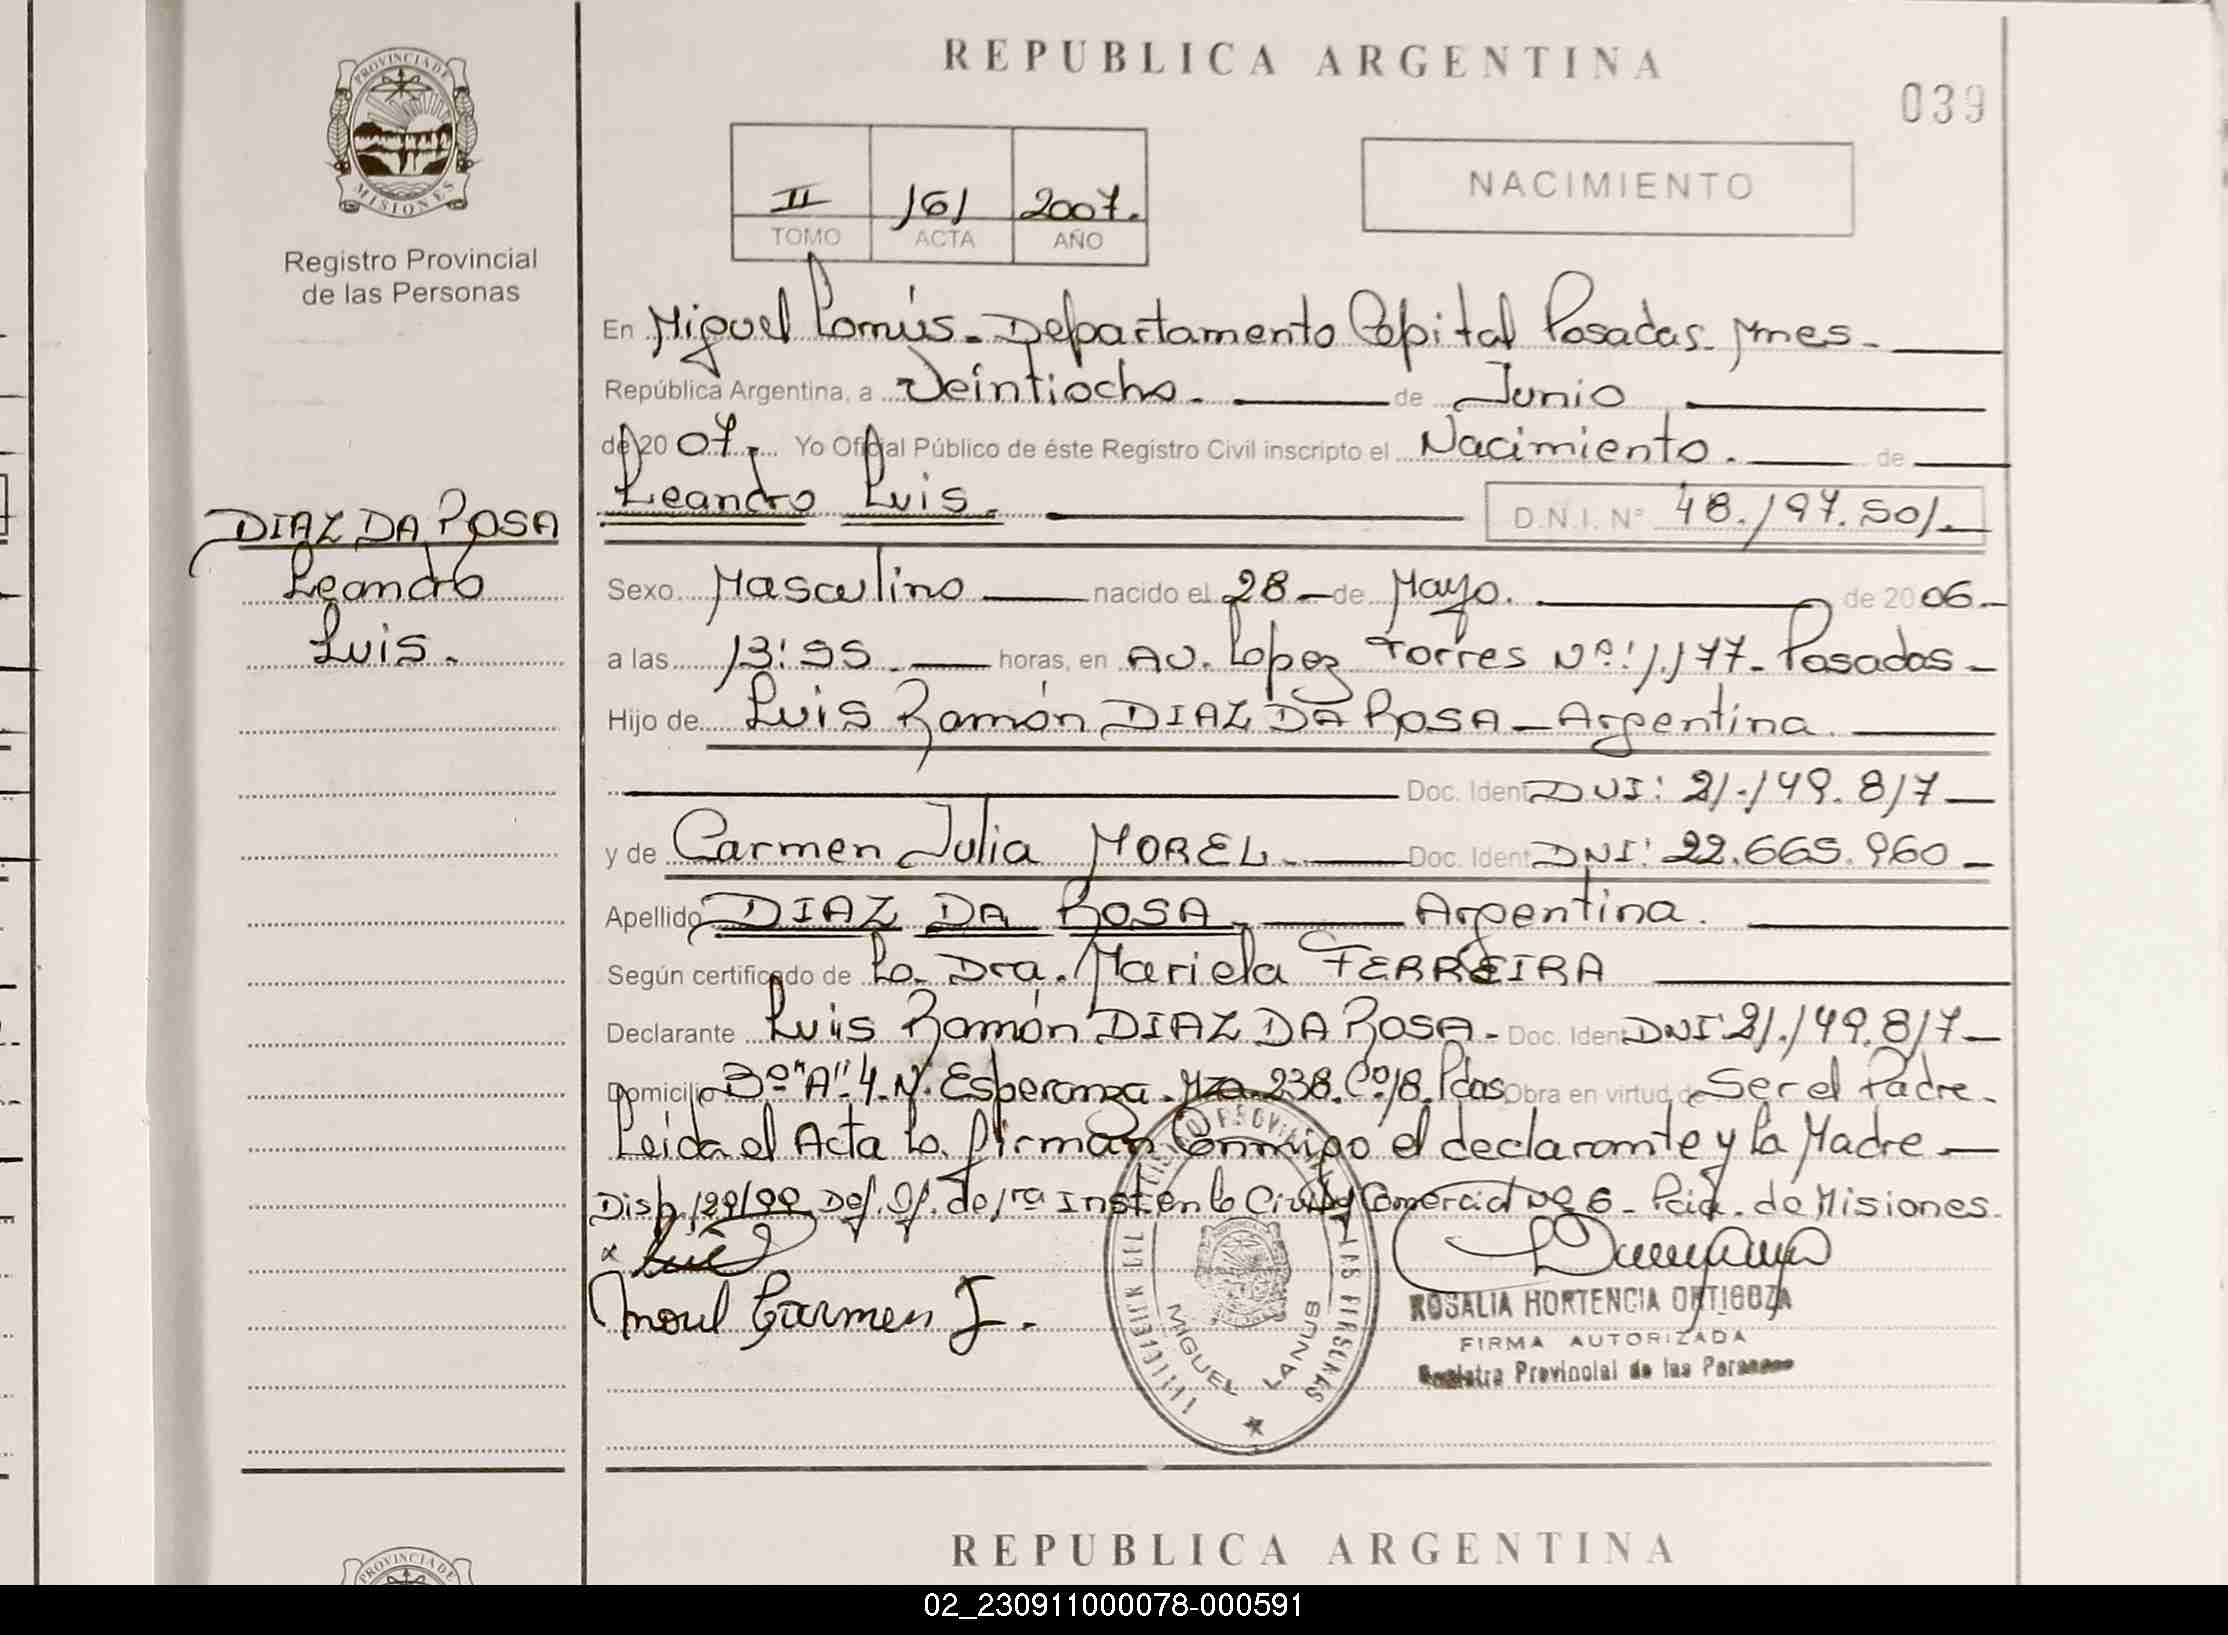 REPUBLICA ARGENTINA
039
PROVINCIA DE
MISIONES
Registro Provincial
de las Personas
II 161 2007.
TOMO ACTA AÑO
NACIMIENTO
En Miguel Lanús - Departamento Capital Posadas. Mnes -
República Argentina, a Veintiocho. de Junio
de 2007. Yo Oficial Público de éste Registro Civil inscripto el Nacimiento. de
Leandro Luis. D.N.I. Nº 48.197.501.
DIAZ DA ROSA
Leandro
Luis.
Sexo Masculino nacido el 28 de Mayo. de 2006.
a las 13:55. horas, en AV. Lopez Torres Nº: 1.177 - Posadas -
Hijo de Luis Ramón DIAZ DA ROSA - Argentina.
Doc. Ident DNI: 21.149.817
y de Carmen Julia MOREL. Doc. Ident DNI: 22.665.960
Apellido DIAZ DA ROSA. Argentina.
Según certificado de La Dra. Mariela FERREIRA
Declarante Luis Ramón DIAZ DA ROSA - Doc. Ident DNI: 21.149.817
Domicilio Bº "A" 4. N. Esperanza. Mza. 238. Cº 18. Pdas Obra en virtud de Ser el Padre.
Leida el Acta la firman Conmigo el declarante y la Madre
Disp. 129/99 Def. Of. de 1ra Inst. en lo Civil y Comercial Nº 6 - Pcia. de Misiones.
Morel Carmen J.
MIGUEL LANUS
ROSALIA HORTENCIA ORTIGOZA
FIRMA AUTORIZADA
Registro Provincial de las Personas
REPUBLICA ARGENTINA
PROVINCIA DE
02_230911000078-000591